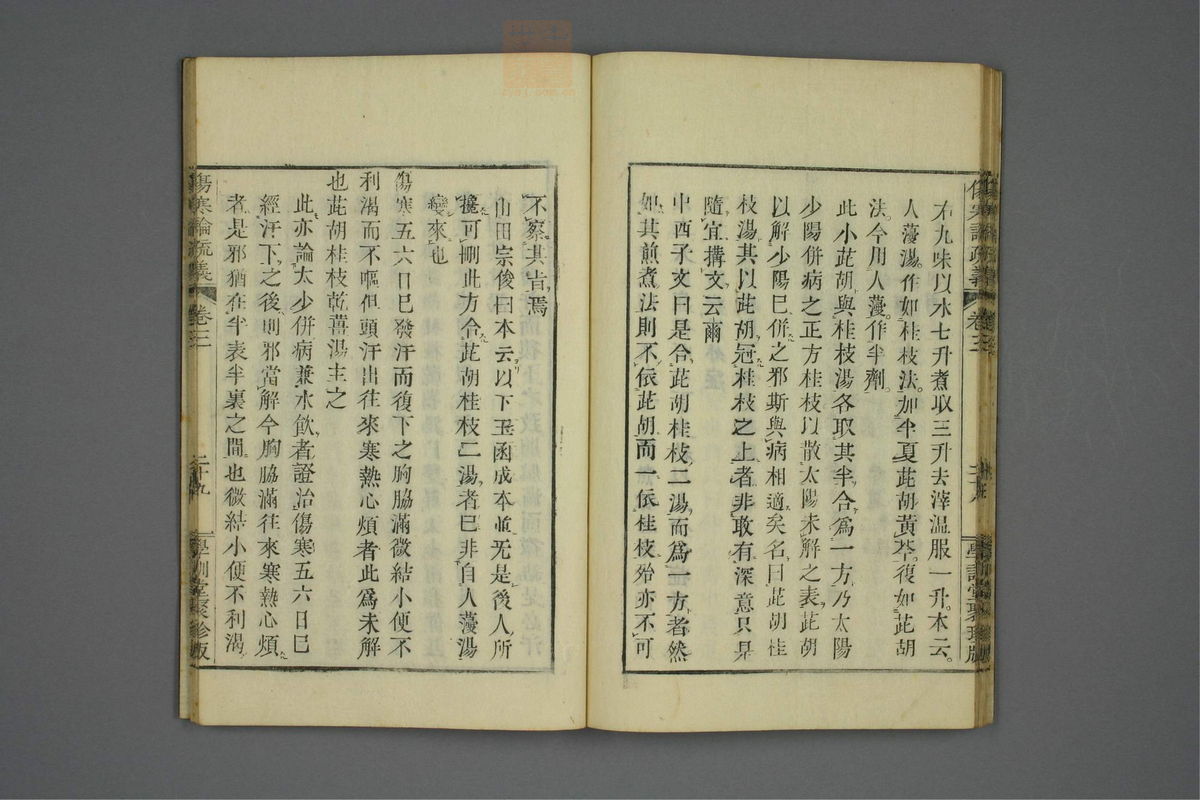 傷寒論疏義 卷三 二十八 學訓堂聚珍版
右九味以水七升煮取三升去滓溫服一升本云
人薓湯作如桂枝法加半夏茈胡黃芩復如茈胡
法今用人薓作半劑
此小茈胡與桂枝湯各取其半合爲一方乃太陽
少陽併病之正方桂枝以散太陽未解之表茈胡
以解少陽已併之邪斯與病相適矣名曰茈胡桂
枝湯其以茈胡冠桂枝之上者非敢有深意只是
隨宜搆文云爾
中西子文曰是合茈胡桂枝二湯而爲一方者然
如其煎煮法則不依茈胡而依桂枝殆亦不可
不察其旨焉
山田宗俊曰本云以下玉函成本並无是後人所
攙可刪此方合茈胡桂枝二湯者已非自人薓湯
變來也
傷寒五六日已發汗而復下之胸脇滿微結小便不
利渴而不嘔但頭汗出往來寒熱心煩者此爲未解
也茈胡桂枝乾薑湯主之
此亦論太少併病兼水飲者證治傷寒五六日已
經汗下之後則邪當解今胸脇滿往來寒熱心煩
者是邪猶在半表半裏之間也微結小便不利渴
傷寒論疏義 卷三 二十九 學訓堂聚珍版